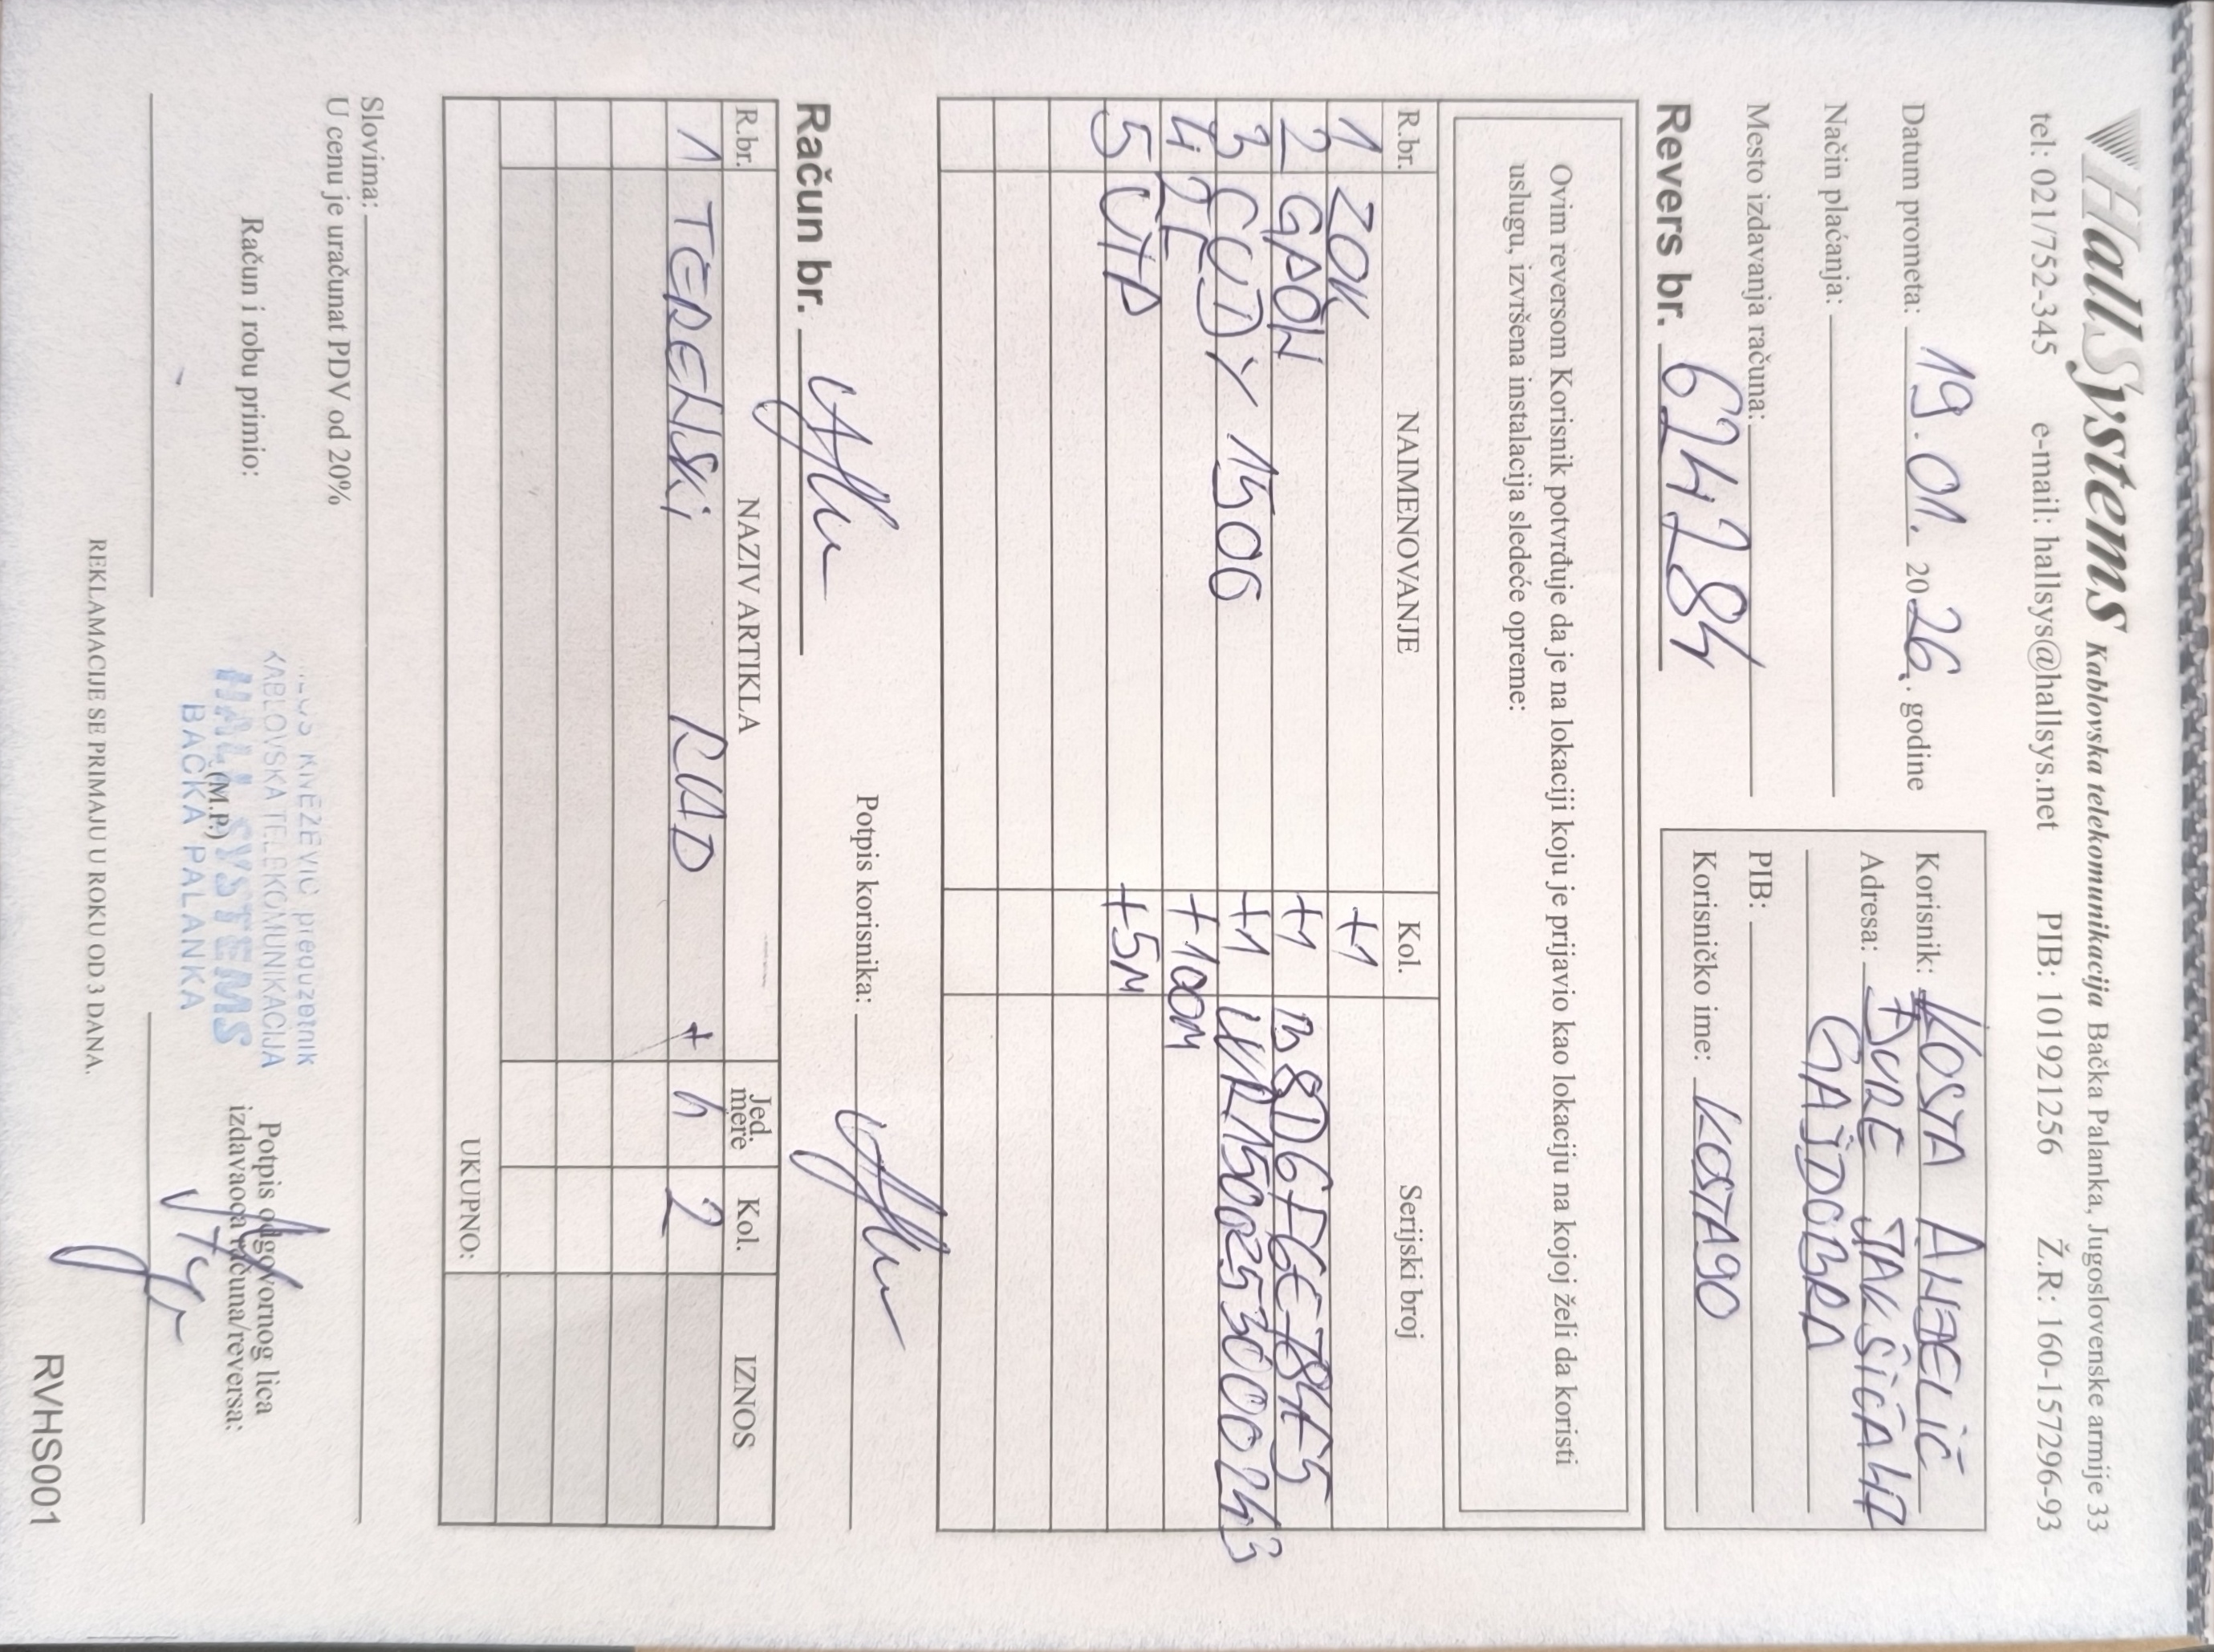 HallSystems Kablovska telekomunikacija Bačka Palanka, Jugoslovenske armije 33
tel: 021/752-345 e-mail: hallsys@hallsys.net PIB: 101921256 Ž.R: 160-157296-93
Datum prometa: 19.01. 2026. godine
Način plaćanja:
Mesto izdavanja računa:
Korisnik: KOSTA ANĐELIĆ
Adresa: ĐURE JAKŠIĆA 47
GAJDOBRA
PIB:
Korisničko ime: KOSTA90
Revers br. 624284
Ovim reversom Korisnik potvrđuje da je na lokaciji koju je prijavio kao lokaciju na kojoj želi da koristi
uslugu, izvršena instalacija sledeće opreme:
R.br. NAIMENOVANJE Kol. Serijski broj
1 ZOK +1
2 GPON +1
3 CUDY 1500 +1
4 +100M
5 UTP +5M
Potpis korisnika:
Račun br.
R.br. NAZIV ARTIKLA Jed. mere Kol. IZNOS
1 TERENSKI RAD + h 2
UKUPNO:
Slovima:
U cenu je uračunat PDV od 20%
Račun i robu primio:
KNEŽEVIĆ preduzetnik
KABLOVSKA TELEKOMUNIKACIJA
HALL SYSTEMS
(M.P.)
BAČKA PALANKA
Potpis odgovornog lica
izdavaoca računa/reversa:
REKLAMACIJE SE PRIMAJU U ROKU OD 3 DANA.
RVHS001